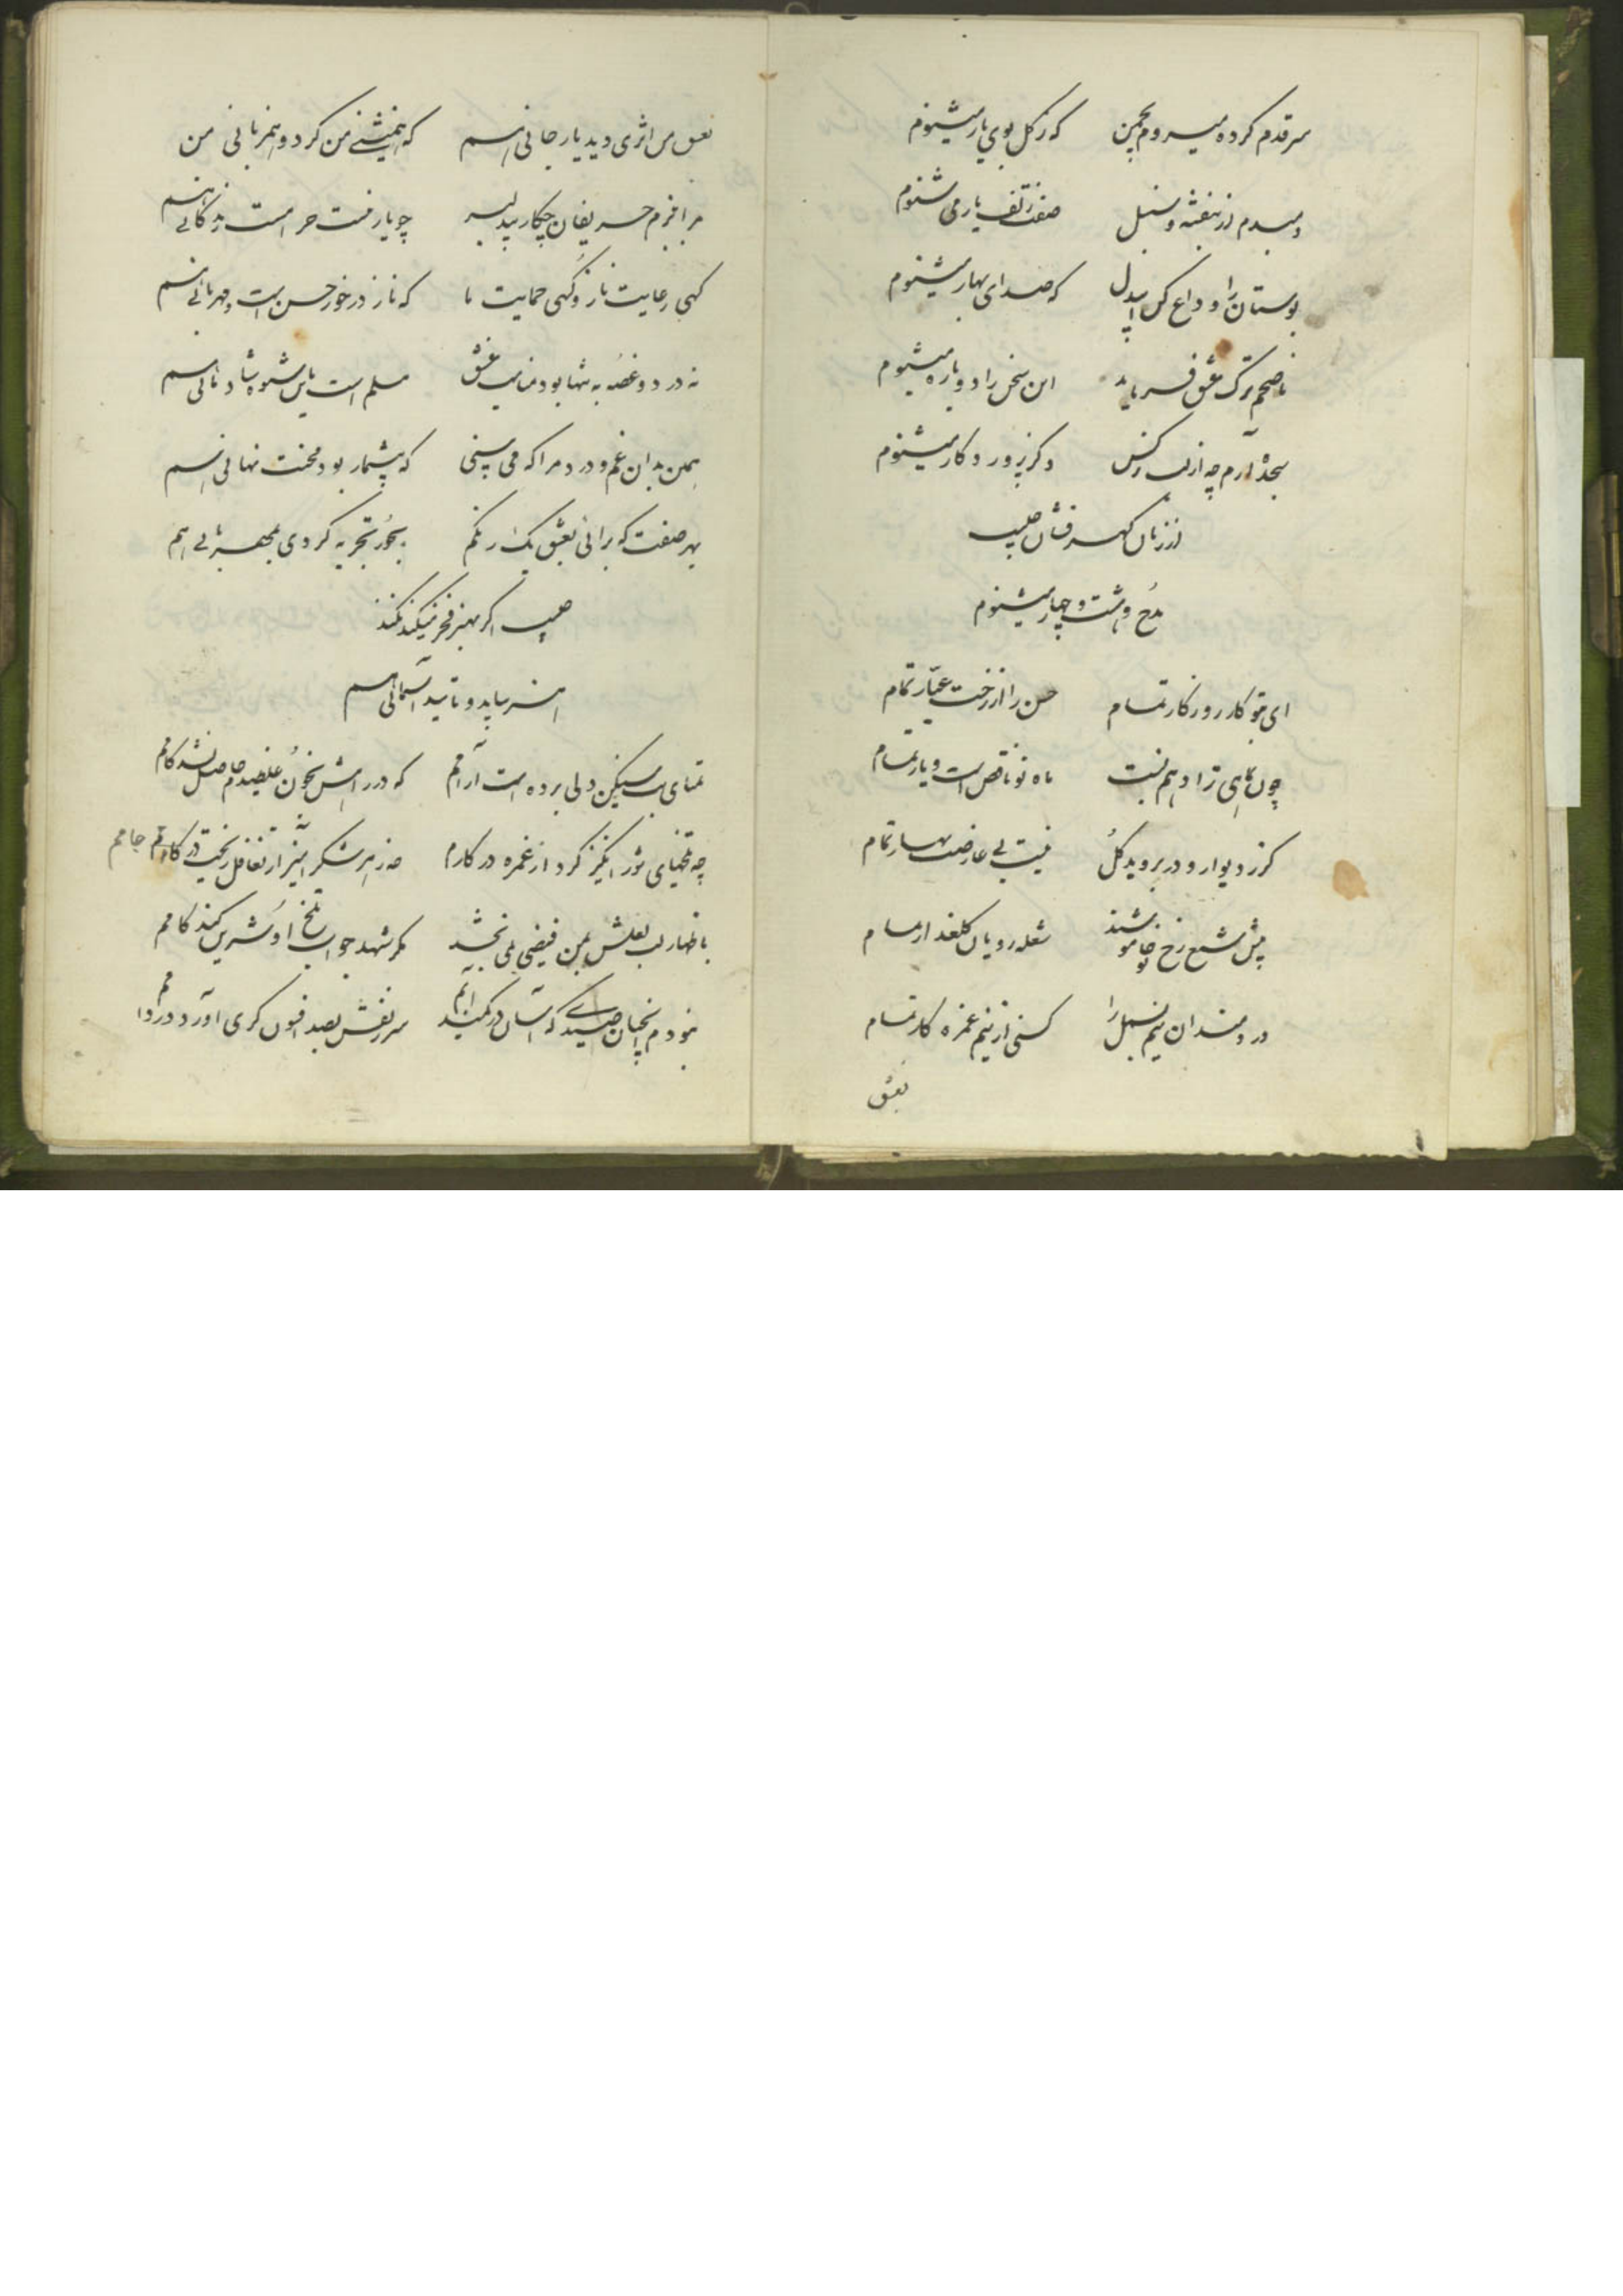 سر قدم کرده میروم بچمن که ز گل بوی یار میشنوم
دمبدم از بنفشه و سنبل صفت زلف یار می شنوم
بوستان را وداع کن ایدل که صدای بهار میشنوم
ناصحم ترک عشق فرماید این سخن را دوباره میشنوم
ذکر پرورد کار میشنوم
از زبان گهر فشان حبیب
مدح هشت و چهار میشنوم
ای بتو کار روزکار تمام حسن را از رخت عیار تمام
چون مه ماه نو ناقص است و یار تمام
کز در و دیوار و در بروید گل نیست بی عارضت بهار تمام
پیش شمع رخ تو خاموشند شعله رویان گلعذار تمام
دردمندان نیم بسمل را کشی از نیم غمزه کار تمام
بعشق
بعشق من اثری دید یار جانی هم که همنشینی من کرد و همزبانی من
مرا بزم حریفان چکار بیدلبر چو یار نیست حرامست زندگانی هم
گهی رعایت ناز و گهی حمایت ما که ناز در خور حسن است و مهربانی هم
نه درد و غصه به تنها بود مناسب عشق مسلم است باین شیوه شادمانی هم
همین بدان غم و درد مرا که می بینی که بیشمار بود محنت نهانی هم
بهر صفت که برانی بعشق یک رنگم بجور تجربه کردی بمهربانی هم
حبیب اگر بهنر فخر میکند نکند
هنر بباید و تایید آسمانی هم
تمنای سنگین دلی برده است آرامم که در راهش بخون غلطیدم حاصل نشد کامم
چه تلخیهای شور انگیز کرد از غمزه در کارم چه زهر شکر آمیز از تغافل ریخت در جامم
باظهار لب لعلش بمن فیضی نمی بخشد مگر شهد جواب تلخ او شیرین کند کامم
نبودم آنچنان صیدی که آسان در کمند آیم سر زلفش بصد افسون گری آورد در دامم